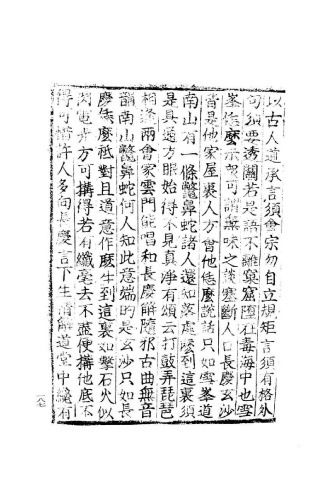 以古人道承言須會宗勿自立規矩言須有格外
句須要透關若是語不離窠窟墮在毒海中也雪
峯恁麽示衆可謂無味之談塞斷人口長慶玄沙
皆是他家屋裏人方會他恁麽說話只如雪峯道
南山有一條鼈鼻蛇諸人還知落處麽到這裏須
是具通方眼始得不見真淨有頌云打鼓弄琵琶
相逢兩會家雲門能唱和長慶解隨邪古曲無音
韻南山鼈鼻蛇何人知此意端的是玄沙只如長
慶恁麽祗對且道意作麽生到這裏如擊石火似
閃電光方可搆得若有纖毫去不盡便搆他底不
得可惜許人多向長慶言下生情解道堂中纔有